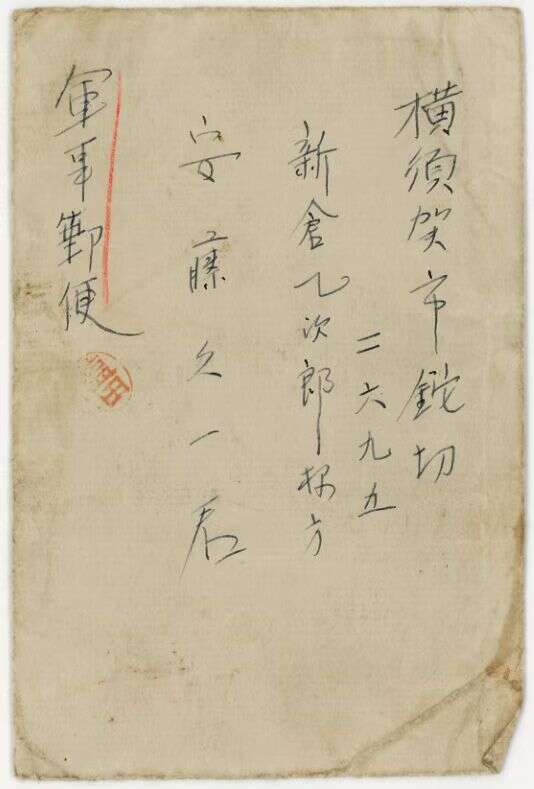 横須賀市鉈切
二六九五
新倉乙次郎様方
安藤久一君
軍事郵便